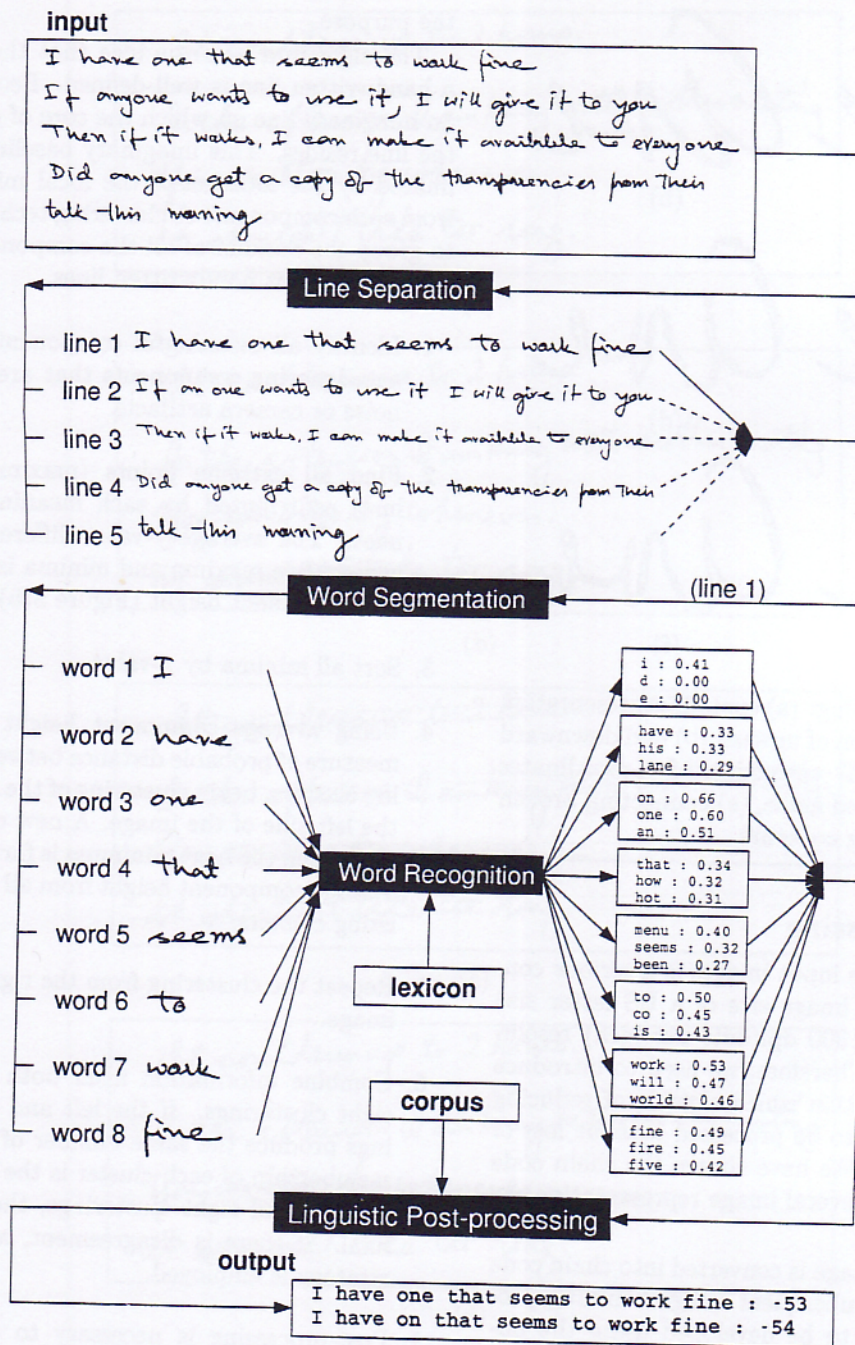 input
I have one that seems to work fine
If anyone wants to use it, I will give it to you
Then if it works, I can make it availible to everyone
Did anyone get a copy of the transparencies from their
talk this morning
Line Separation
line 1 I have one that seems to work fine
line 2 If an one wants to use it I will give it to you
line 3 Then if it works, I can make it available to everyone
line 4 Did anyone get a copy of the transparencies from their
line 5 talk this morning
(line 1)
Word Segmentation
word 1 I
word 2 have
word 3 one
word 4 that
word 5 seems
word 6 to
word 7 work
word 8 fine
Word Recognition
lexicon
i : 0.41
d : 0.00
e : 0.00
have : 0.33
his : 0.33
lane : 0.29
on : 0.66
one : 0.60
an : 0.51
that : 0.34
how : 0.32
hot : 0.31
menu : 0.40
seems : 0.32
been : 0.27
to : 0.50
co : 0.45
is : 0.43
work : 0.53
will : 0.47
world : 0.46
fine : 0.49
fire : 0.45
five : 0.42
corpus
Linguistic Post-processing
output
I have one that seems to work fine : -53
I have on that seems to work fine : -54